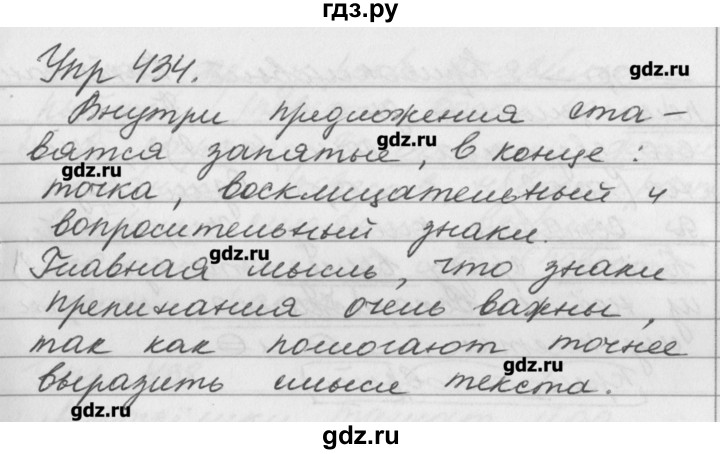 гдз.ру
Упр 434.
gdz.ru
Внутри предложения ста-
gdz.ru
вятся запятые, в конце:
gdz.ru
точка, восклицательный и
вопросительный знаки.
gdz.ru
Главная мысль, что знаки
препинания очень важны,
так как помогают точнее
gdz.ru
выразить смысл текста.
gdz.ru
gdz.ru